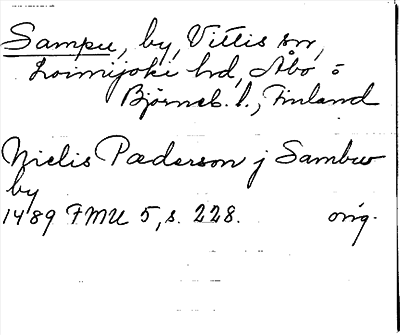 Sampu, by, Vittis sn,
Loimijoki hd, Åbo o
Björneb. l., Finland
Nielis Pæderson j Sambw
by
1489 FMU 5, s. 228. orig.